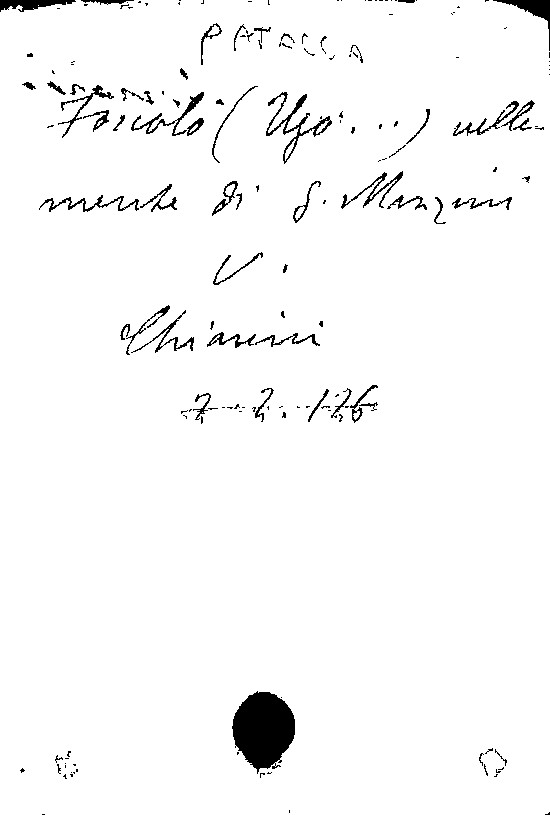 PATACCA
Foscolo (Ugo...) nella
mente di G. Mazzini
V.
Chiarini
7. 2. 126